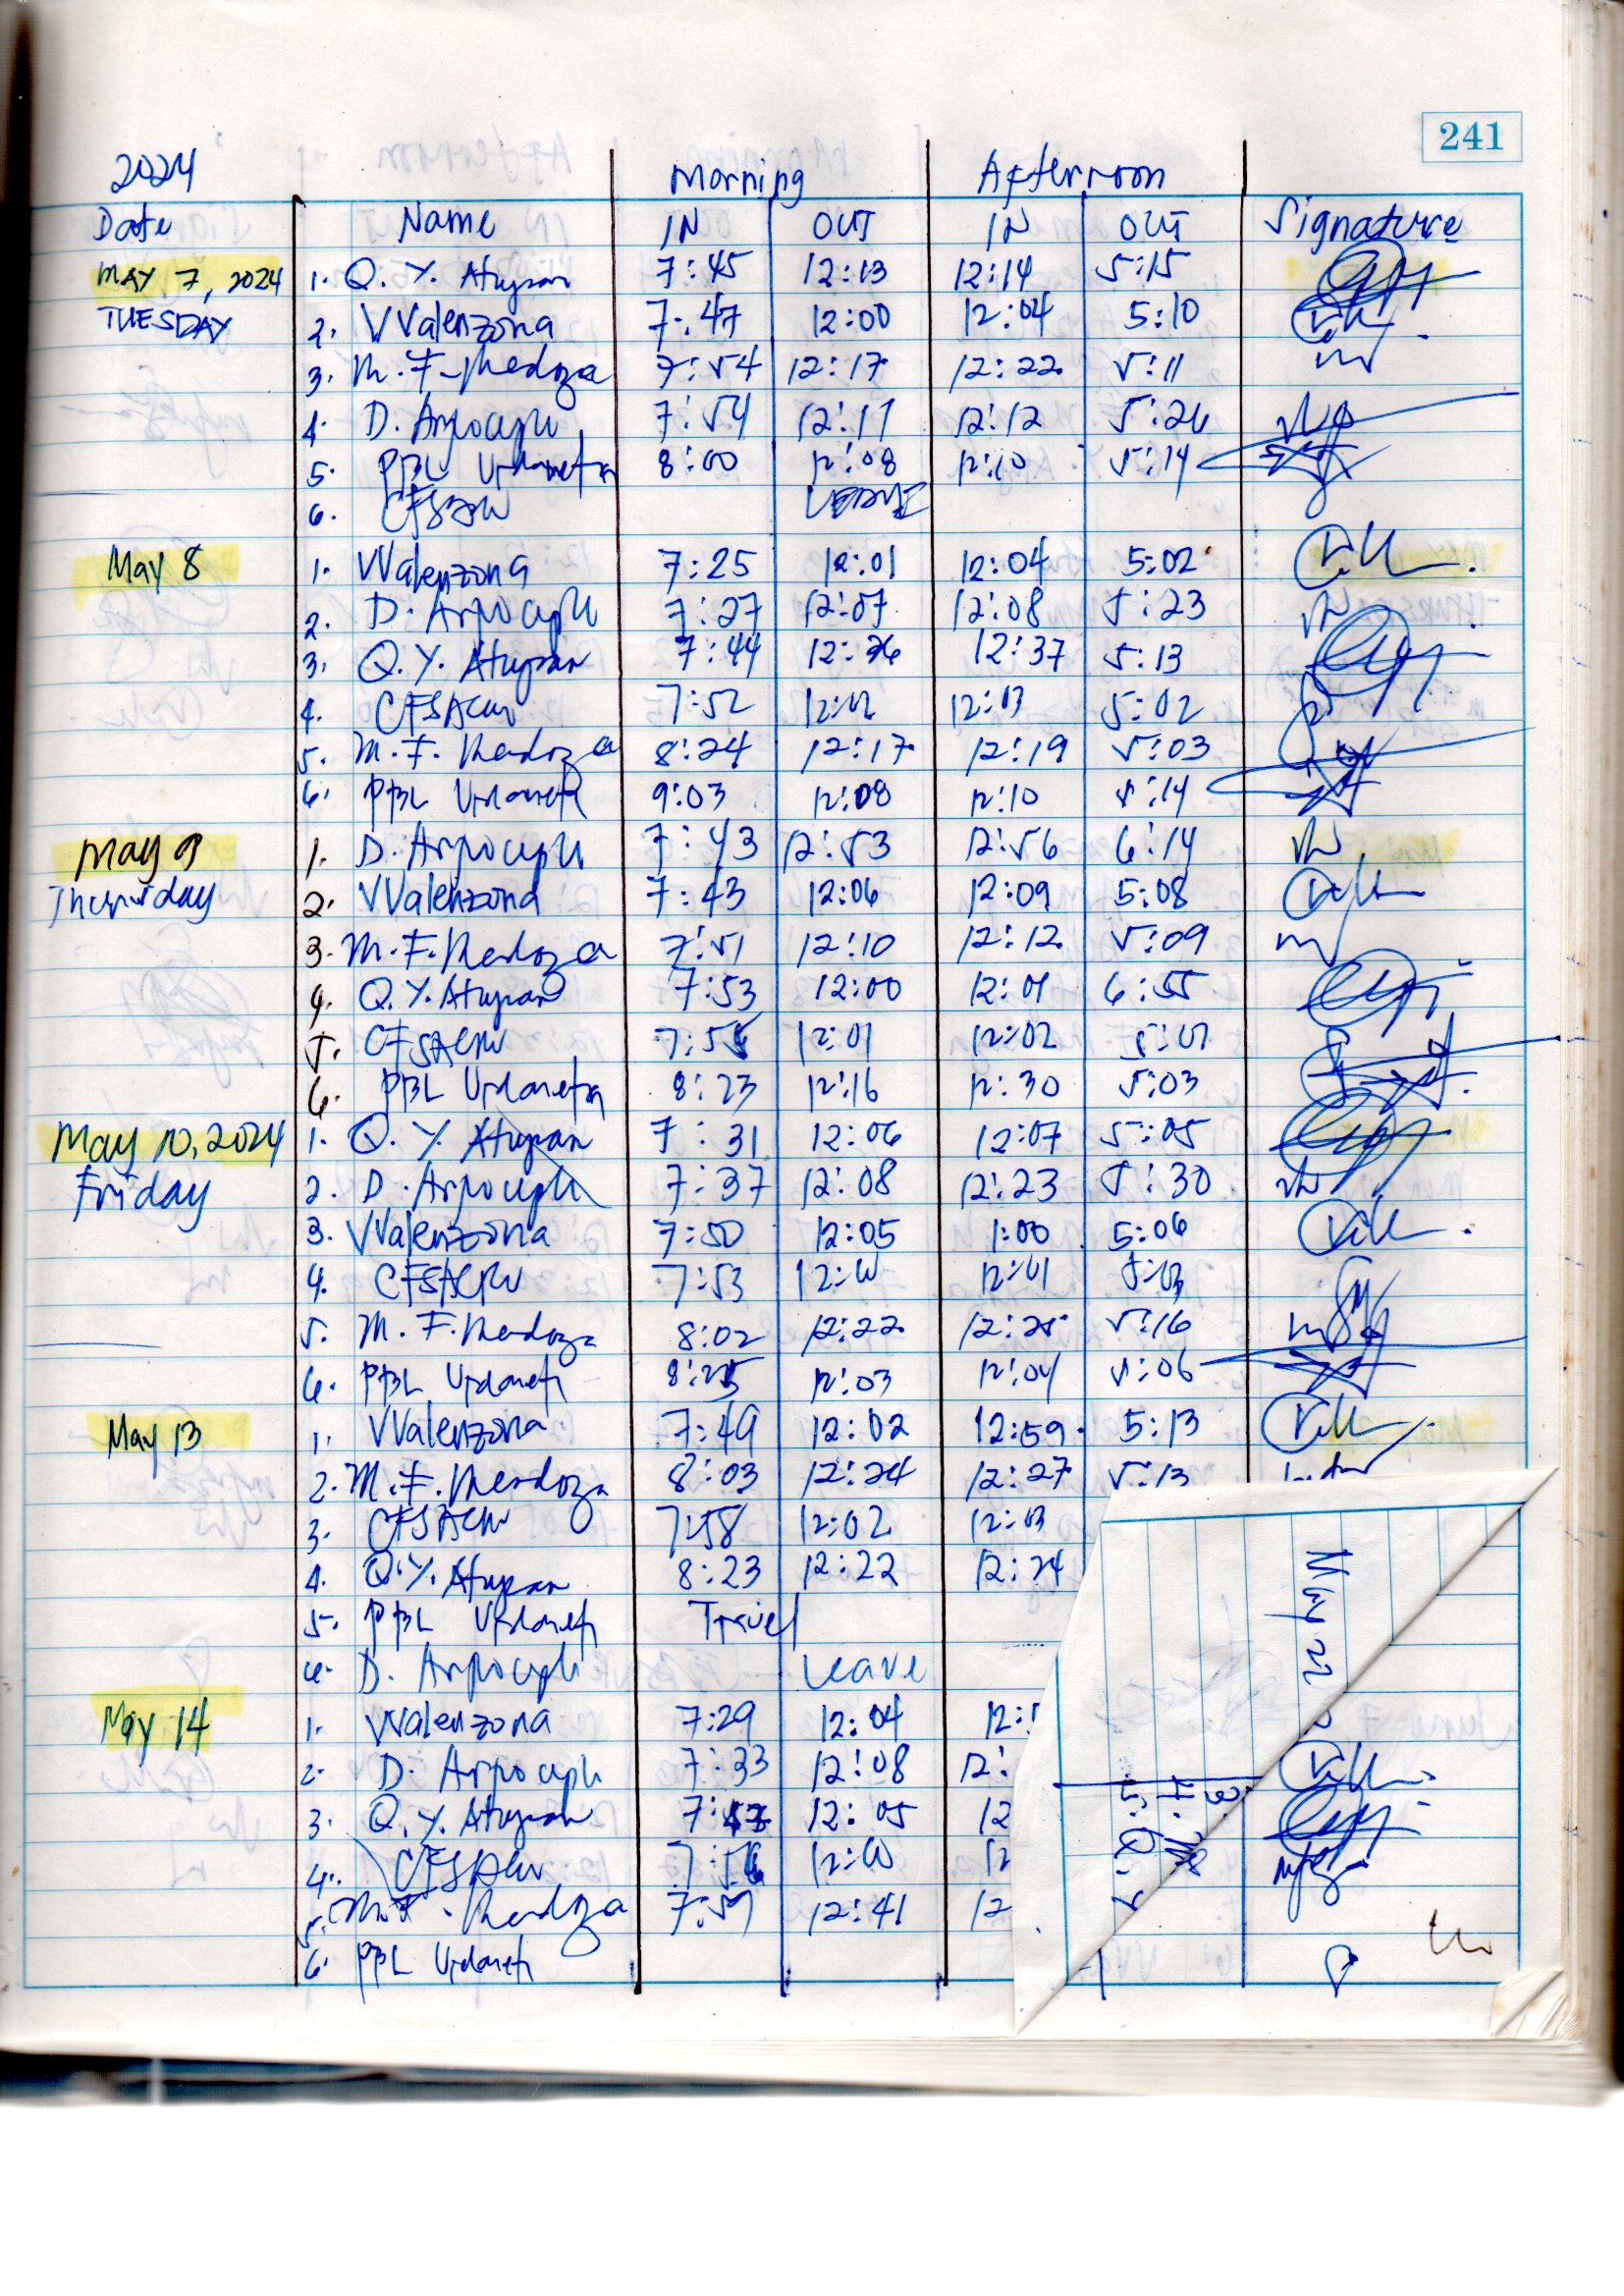 241
2024 Morning Afternoon
Date Name IN OUT IN OUT Signature
MAY 7, 2024 1. Q. Y. Atupan 7:45 12:13 12:14 5:15
TUESDAY 2. VValenzona 7:47 12:00 12:04 5:10
3. M. F. Mendoza 7:54 12:17 12:22 5:11
4. D. 7:54 12:11 12:12 5:26
5. PBL Urdaneta 8:00 12:08 12:10 5:14
6.
May 8 1. VValenzona 7:25 12:01 12:04 5:02
2. D. 7:27 12:07 12:08 5:23
3. Q. Y. Atupan 7:44 12:36 12:37 5:13
4. 7:52 12:02 12:03 5:02
5. M. F. Mendoza 8:24 12:17 12:19 5:03
6. PBL Urdaneta 9:03 12:08 12:10 5:14
May 9 1. D. 7:43 12:53 12:56 6:14
Thursday 2. VValenzona 7:43 12:06 12:09 5:08
3. M. F. Mendoza 7:51 12:10 12:12 5:09
4. Q. Y. Atupan 7:53 12:00 12:01 6:55
5. 12:01 12:02 5:01
6. PBL Urdaneta 8:23 12:16 12:30 5:03
May 10, 2024 1. Q. Y. Atupan 7:31 12:06 12:07 5:05
Friday 2. D. 7:37 12:08 12:23 5:30
3. VValenzona 7:50 12:05 1:00 5:06
4. 7:53 12:00 12:01 5:03
5. M. F. Mendoza 8:02 12:22 12:25 5:16
6. PBL Urdaneta 12:03 12:04 5:06
May 13 1. VValenzona 7:49 12:02 12:59 5:13
2. M. F. Mendoza 8:03 12:24 12:27 5:13
3. 7:58 12:02 12:03
4. Q. Y. Atupan 8:23 12:22 12:24
5. PBL Urdaneta Travel
6. D. Leave
May 22
May 14 1. VValenzona 7:29 12:04 12:5
2. D. 7:33 12:08 12:
3. Q. Y. Atupan 12:05 12
4. 12:00 12
5. M. F. Mendoza 7:59 12:41 12
6. PBL Urdaneta